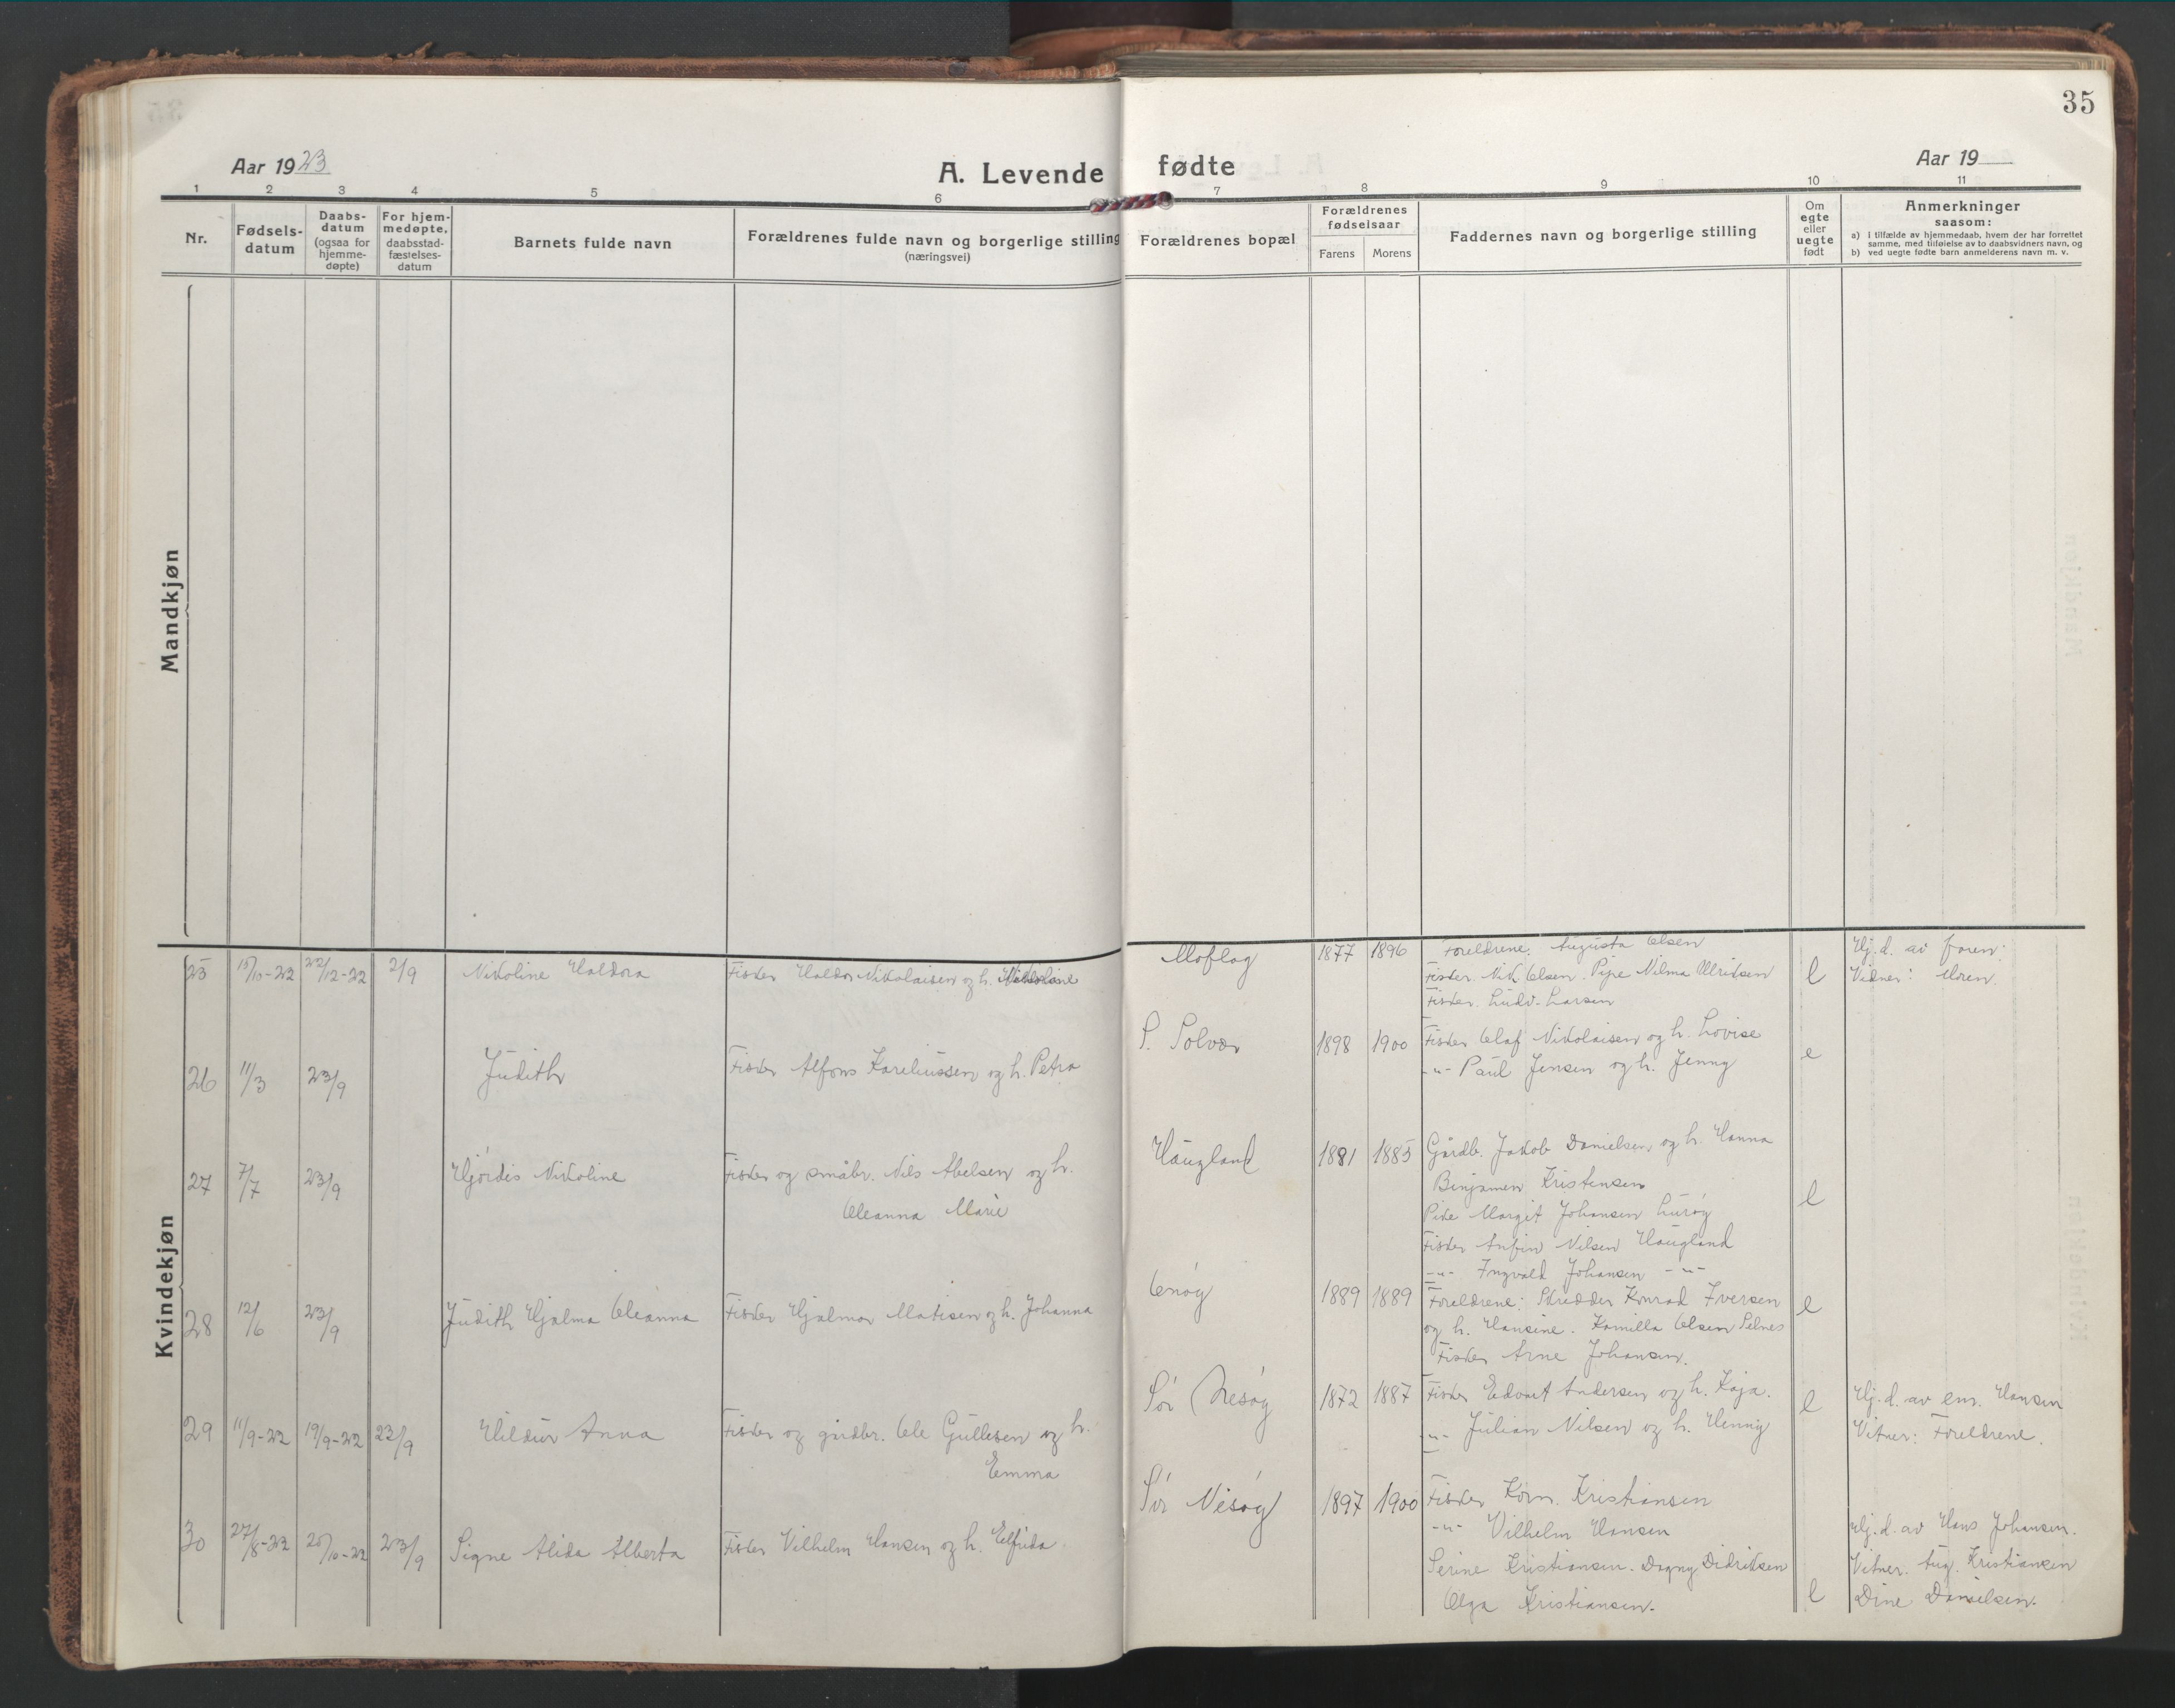 35
Aar 1923
A. Levende fødte
Aar 19
1 2 3 4 5 6 7 8 9 10 11
Nr.
Fødsels-
datum
Daabs-
datum
(ogsaa for
hjemme-
døpte)
For hjem-
medøpte,
daabsstad-
fæstelses-
datum
Barnets fulde navn
Forældrenes fulde navn og borgerlige stilling
(næringsvei)
Forældrenes bopæl
Forældrenes
fødselsaar
Farens Morens
Faddernes navn og borgerlige stilling
Om
egte
eller
uegte
født
Anmerkninger
saasom:
a) i tilfælde av hjemmedaab, hvem der har forrettet
samme, med tilføielse av to daabsvidners navn, og
b) ved uegte fødte barn anmelderens navn m. v.
Mandkjøn
Kvindekjøn
25 15/10-22 22/12-22 2/9 Nikoline Haldora Fisker Haldor Nikolaisen og h. Moflag 1877 1896 Foreldrene. Augusta Olsen e Hj.d. av faren.
Fisker. Nik. Olsen. Pipe Nilma Ulriksen Vidner: Moren.
Fisker. Ludv. Larsen
26 11/3 23/9 Judith Fisker Alfons Kareliussen og h. Petra S. Solvær 1898 1900 Fisker Olaf Nikolaisen og h. Lovise e
-"- Paul Jensen og h. Jenny
27 7/7 23/9 Hjørdis Nikoline Fisker og småbr. Nils Abelsen og h. Haugland 1881 1885 Gårdb. Jakob Danielsen og h. Hanna e
Oleanna Marie Benjamen Kristensen
Pike Margit Johansen Lurøy
Fisker Anfin Nilsen Haugland
-"- Ingvald Johansen -"-
28 12/6 23/9 Judith Hjalma Oleanna Fisker Hjalmar Matisen og h. Johanna Onøy 1889 1889 Foreldrene: Skredder Konrad Iversen e
og h. Hansine. Kamilla Olsen Selnes
Fisker Arne Johansen.
29 11/9-22 19/9-22 23/9 Hildur Anna Fisker og gårdbr. Ole Gullesen og h. Sør Nesøy 1872 1887 Fisker Edvart Andersen og h. Kaja. e Hj.d. av em. Hansen
Emma -"- Julian Nilsen og h. Henny Vitner: Foreldrene.
30 27/8-22 25/10-22 23/9 Signe Alida Alberta Fisker Vilhelm Hansen og h. Elfrida Sør Nesøy 1897 1900 Fisker Korn. Kristiansen
-"- Vilhelm Hansen Hj.d. av Hans Johansen.
Serine Kristiansen. Dagny Didriksen Vitner. Aug. Kristiansen
Olga Kristiansen. e Dine Danielsen.